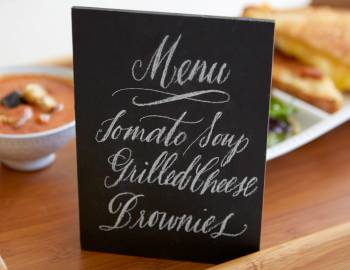 Menu
Tomato Soup
Grilled Cheese
Brownies